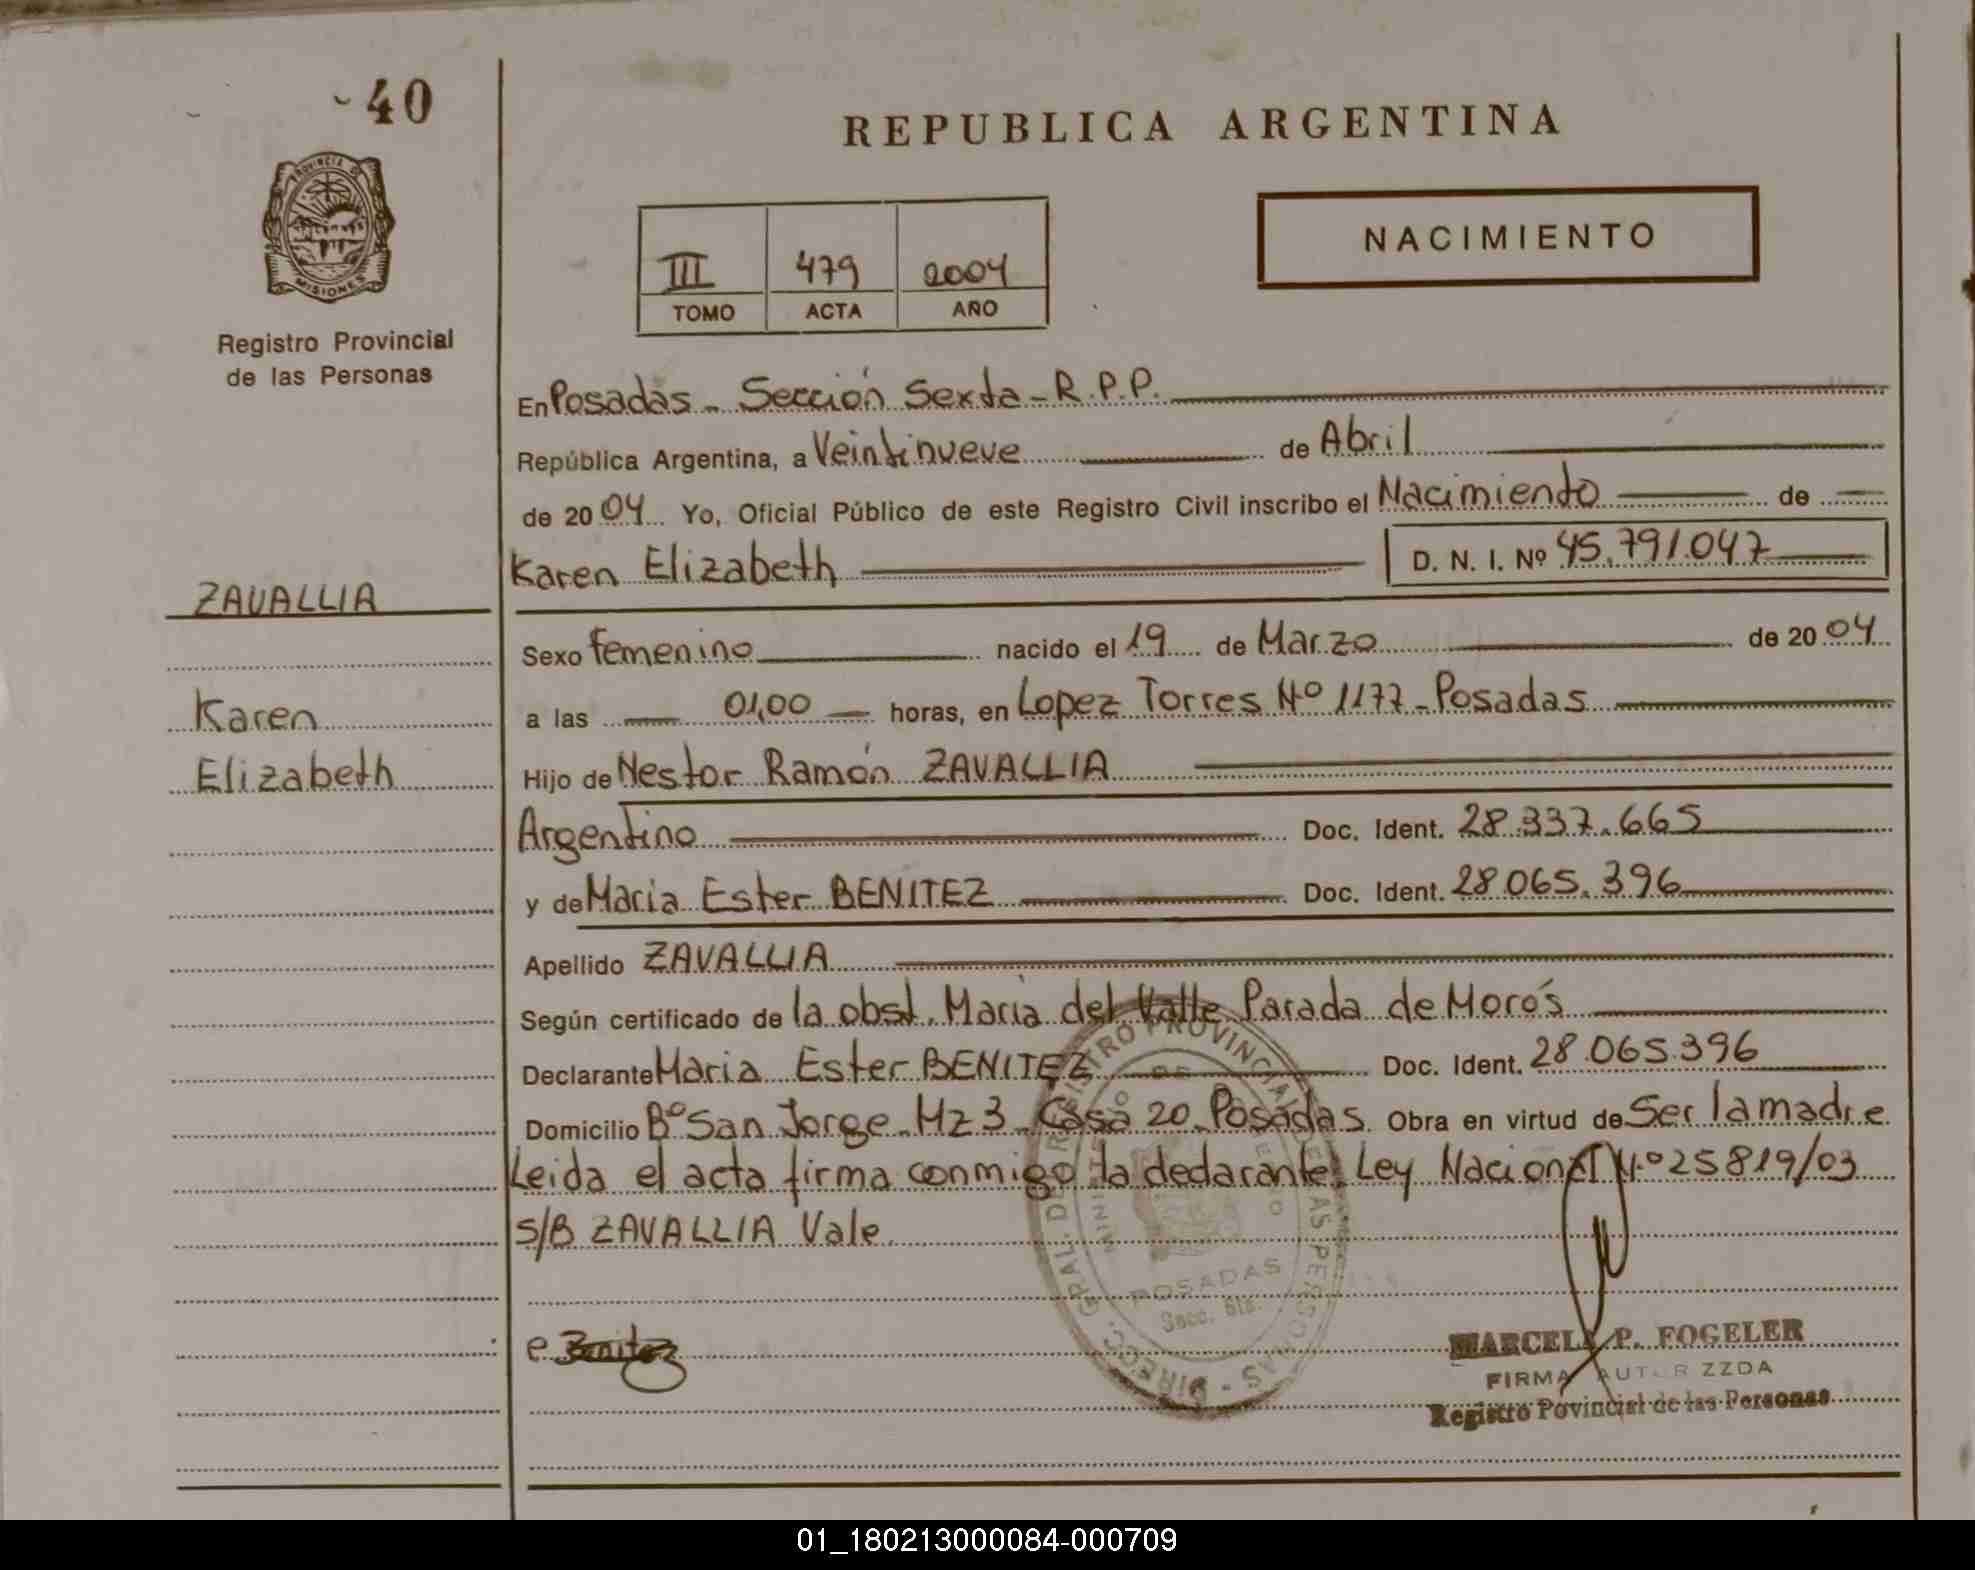 40
PROVINCIA DE
MISIONES
Registro Provincial
de las Personas
ZAVALLIA
Karen
Elizabeth
REPUBLICA ARGENTINA
NACIMIENTO
III 479 2004
TOMO ACTA AÑO
En Posadas - Sección Sexta - R.P.P.
República Argentina, a Veintinueve de Abril
de 2004 Yo, Oficial Público de este Registro Civil inscribo el Nacimiento de
Karen Elizabeth D. N. I. Nº 45.791.047
Sexo femenino nacido el 19 de Marzo de 2004
a las 01,00 horas, en Lopez Torres Nº 1177 - Posadas
Hijo de Nestor Ramón ZAVALLIA
Argentino Doc. Ident. 28.337.665
y de Maria Ester BENITEZ Doc. Ident. 28.065.396
Apellido ZAVALLIA
Según certificado de la obst. Maria del Valle Parada de Morós
Declarante Maria Ester BENITEZ Doc. Ident. 28.065.396
Domicilio Bº San Jorge - Mz 3 - Casa 20 - Posadas Obra en virtud de Ser la madre
Leida el acta firma conmigo la declarante. Ley Nacional Nº 25819/03
S/B ZAVALLIA Vale.
DIRECC. GRAL. DEL REGISTRO PROVINCIAL DE LAS PERSONAS
POSADAS
Secc. 6ta.
Benitez
MARCELA P. FOGELER
FIRMA AUTORIZZDA
Registro Povincial de las Personas
01_180213000084-000709